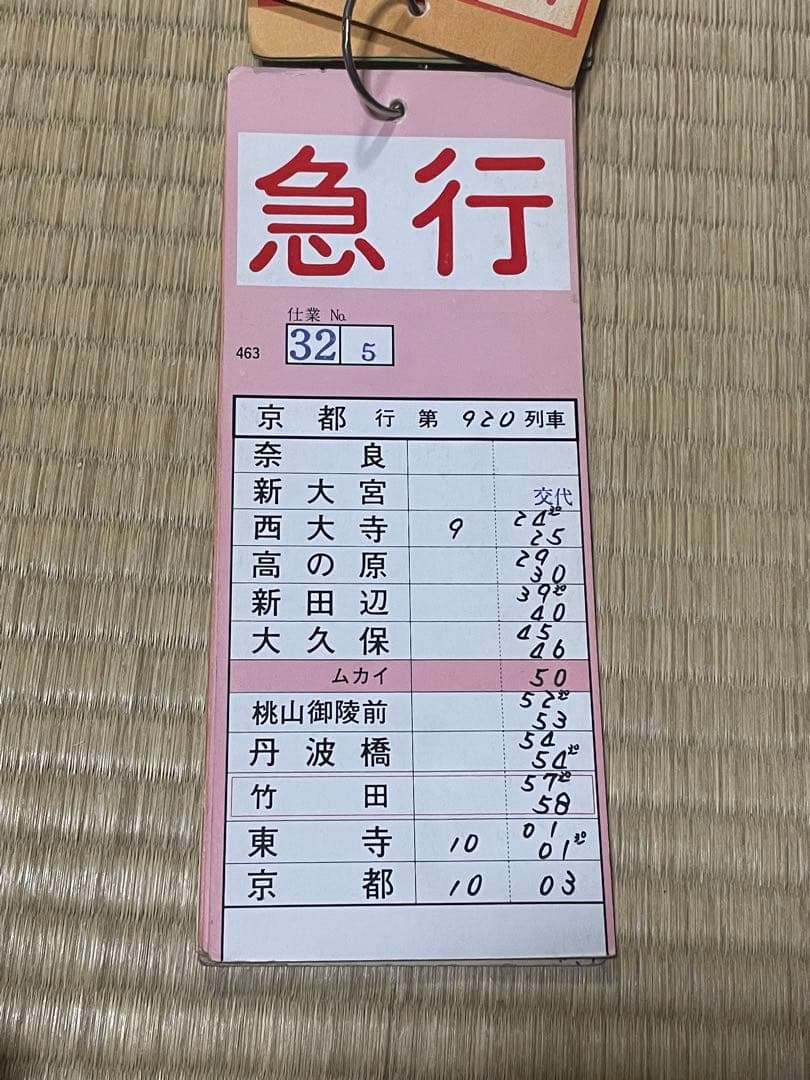 急行
仕業 No.
463 32 5
京都 行 第 920 列車
奈良
新大宮 交代
西大寺 9 24³⁰
25
高の原 29
30
新田辺 39²⁰
40
大久保 45
46
ムカイ 50
桃山御陵前 52²⁰
53
丹波橋 54
54²⁰
竹田 57²⁰
58
東寺 10 01
01³⁰
京都 10 03